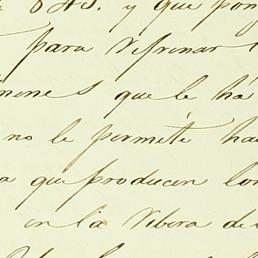 y que pon
para refrenar
nenes que le há
no le permite ha
a que producen lo
en la Vibora de